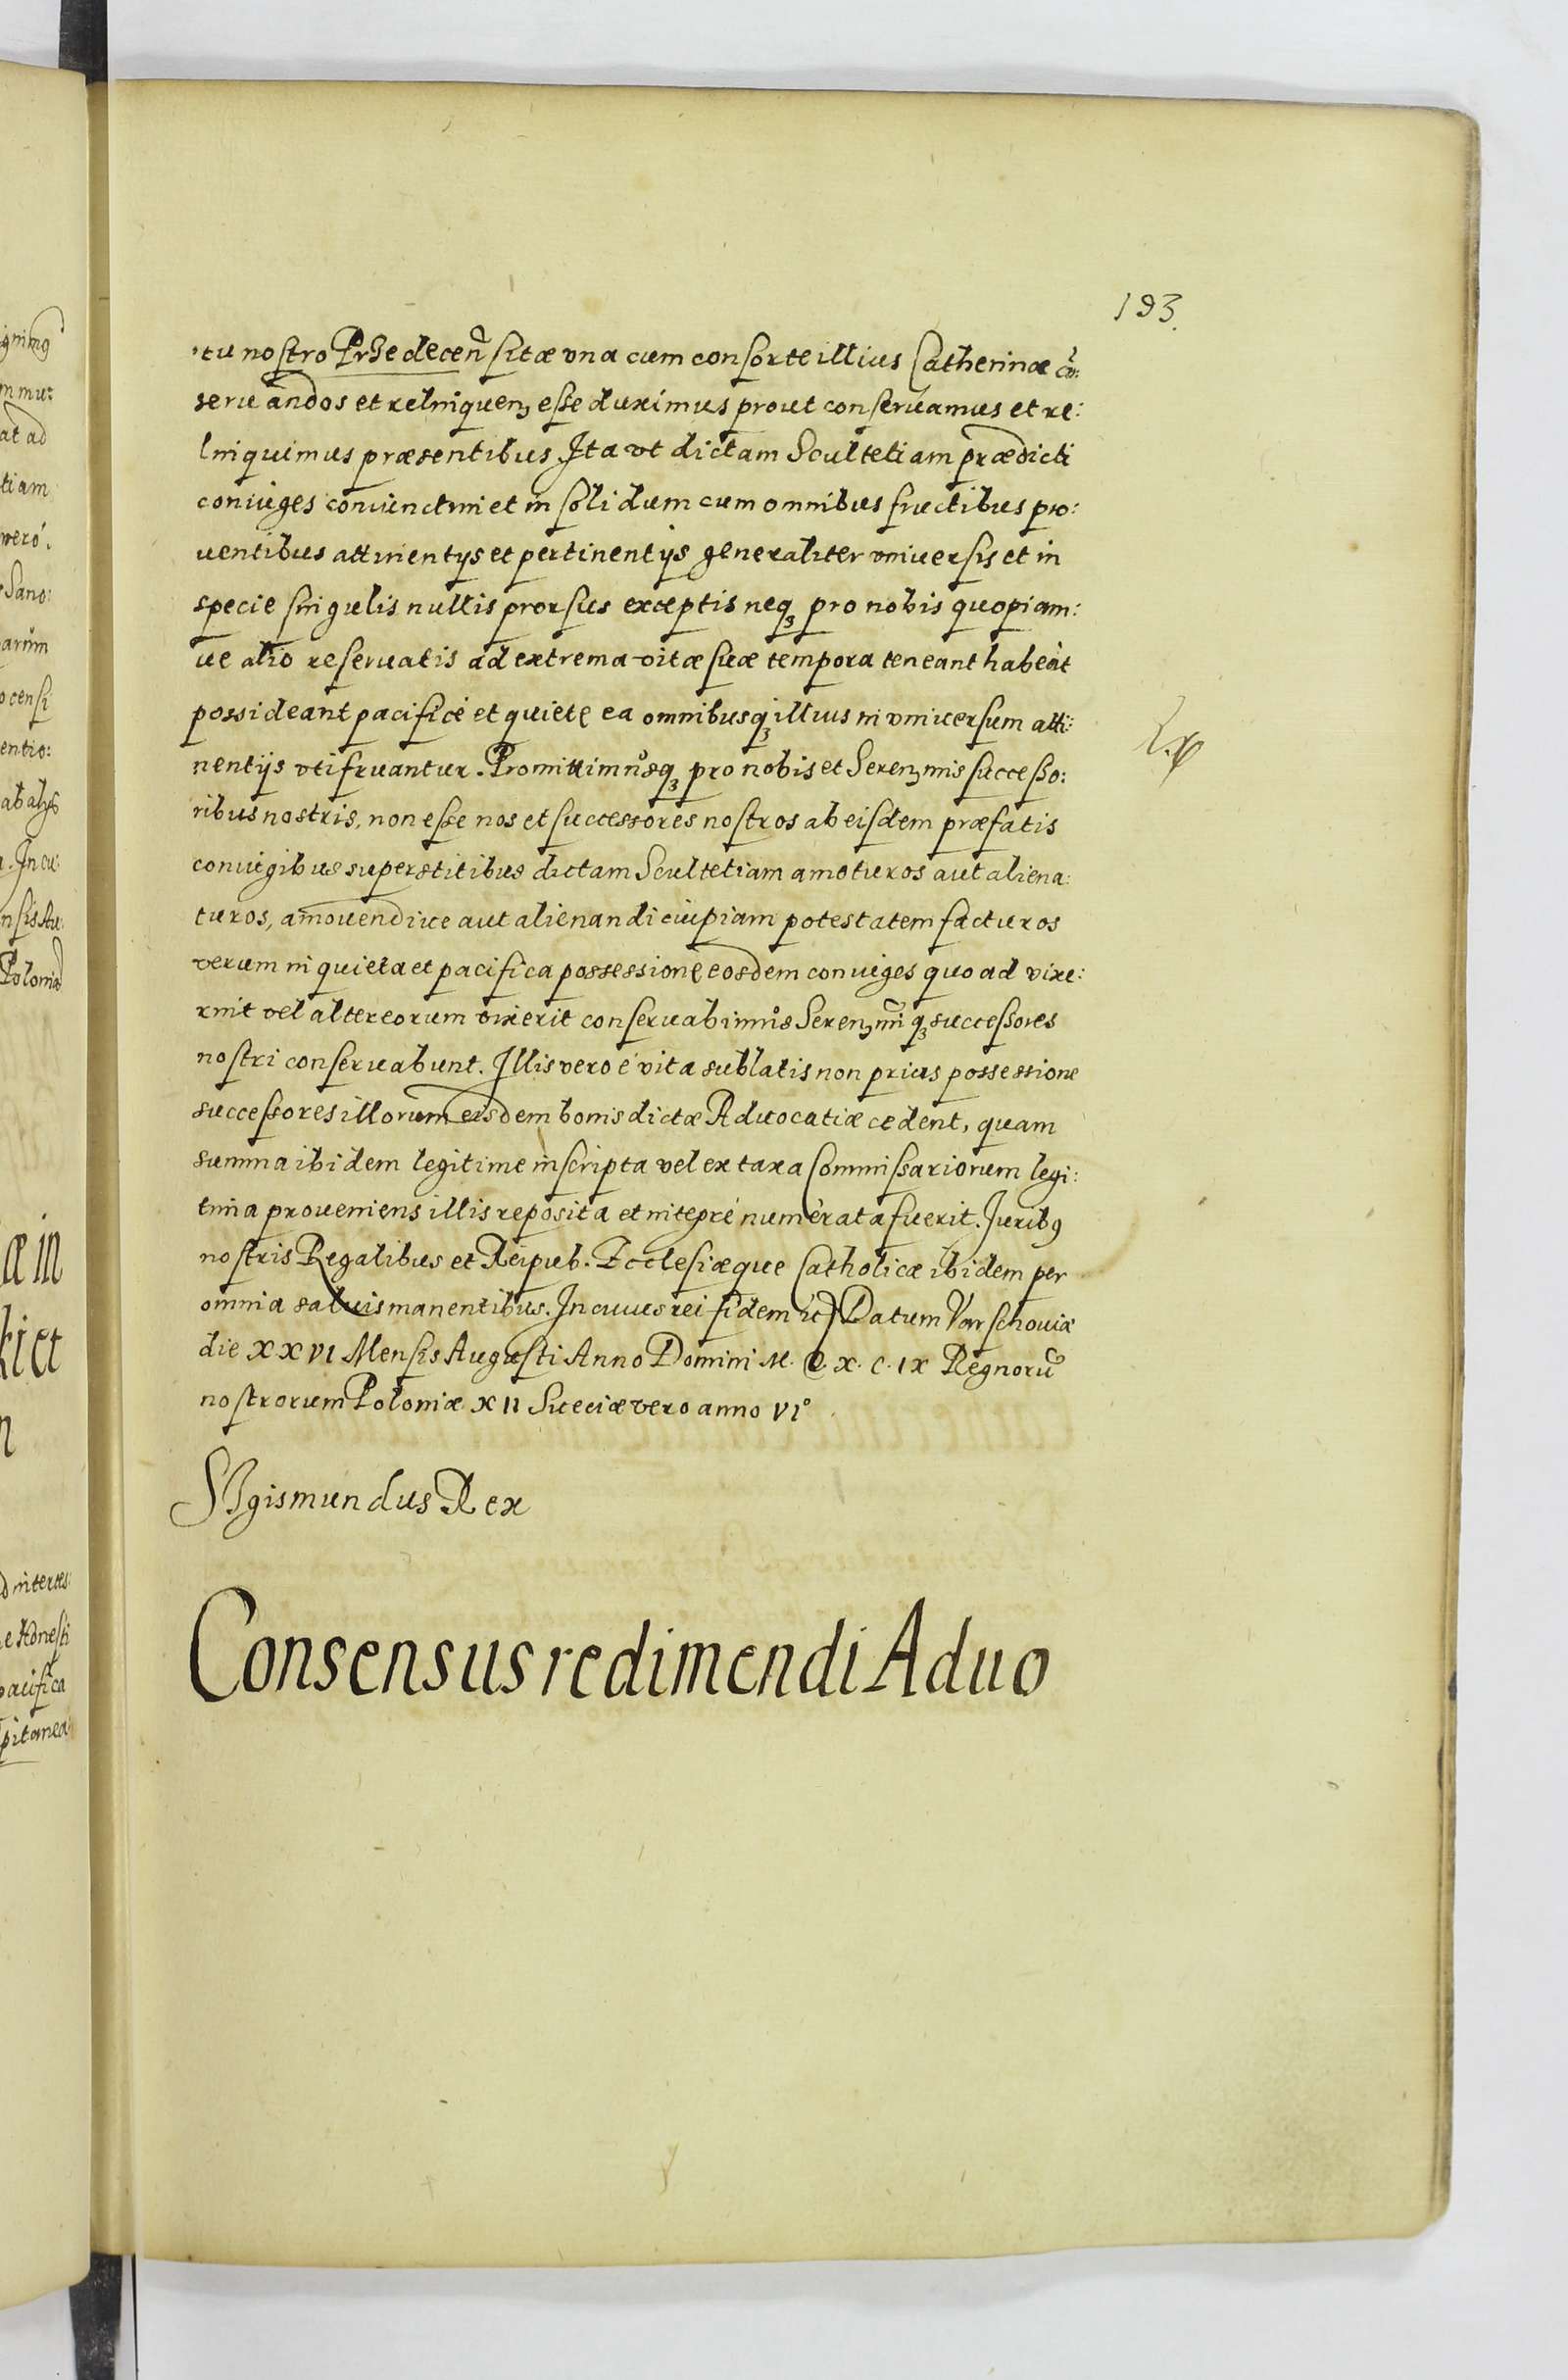 193.
tu nostro Prꝫedeceñ sitæ vna cum consorte illius Catherinæ cō:
seruandos et relinquenꝫ esse duximus prout conseruamus et re:
linquimus præsentibus. Ita vt dictam Scultetiam prædicti
coniuges coniunctim et in solidum cum omnibus fructibus pro:
uentibus attinentijs et pertinentijs generaliter vniuersis et in
specie singulis nullis prorsus exceptis neqꝫ pro nobis quopiam:
ue alio reseruatis ad extrema vitæ suæ tempora teneant habeāt
possideant pacificé et quiete ea omnibusqꝫ illius in vniuersum atti:
nentijs vti fruantur. Promittimusqꝫ pro nobis et Serenꝫmis successo:
ribus nostris, non esse nos et successores nostros ab eisdem præfatis
coniugibus superstitibus dictam Scultetiam amoturos aut aliena:
turos, amouendiue aut alienandi cuipiam potestatem facturos
verum in quieta et pacifica possessione eosdem coniuges quo ad vixe:
rint vel alter eorum vixerit conseruabimus Serenꝫmiqꝫ successores
nostri conseruabunt. Illis vero é vita sublatis non prius possessione
successores illorum eisdem bonis dictæ Aduocatiæ cedent, quam
summa ibidem legitime inscripta vel ex taxa Commissariorum legi:
tima proueniens illis reposita et integré numerata fuerit. Juribꝰ
nostris Regalibus et Reipub. Ecclesiæque Catholicæ ibidem per
omnia saluis manentibus. In cuius rei fidem ꝛc Datum Varschouiæ
die XXVI Mensis Augusti Anno Domini M. D. X. C. IX Regnorū
nostrorum Poloniæ XII Sueciæ vero anno VI°
Sigismundus Rex
Consensus redimendi Aduo